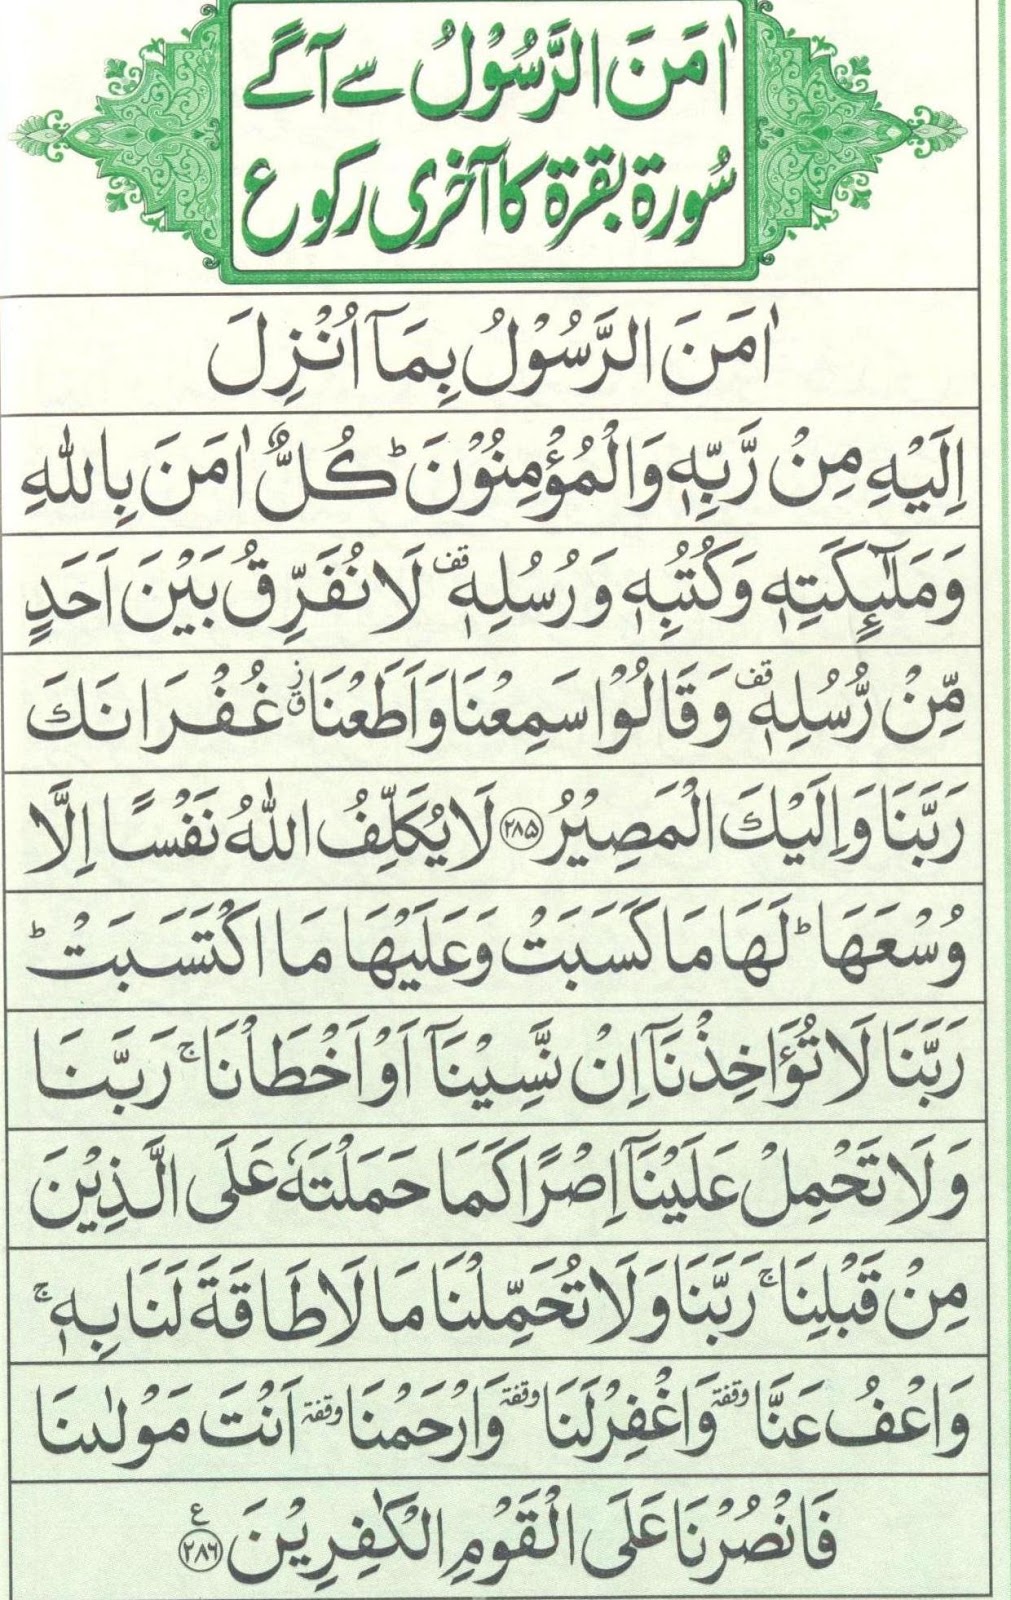 اٰمَنَ الرَّسُوْلُ سے آگے
سُورۃ بقرۃ کا آخری رکوع
اٰمَنَ الرَّسُوْلُ بِمَاۤ اُنْزِلَ
اِلَیْهِ مِنْ رَّبِّهٖ وَالْمُؤْمِنُوْنَ ؕ كُلٌّ اٰمَنَ بِاللّٰهِ
وَمَلٰٓئِكَتِهٖ وَكُتُبِهٖ وَرُسُلِهٖ قف لَا نُفَرِّقُ بَیْنَ اَحَدٍ
مِّنْ رُّسُلِهٖ قف وَقَالُوْا سَمِعْنَا وَاَطَعْنَا ق ز غُفْرَانَكَ
رَبَّنَا وَاِلَیْكَ الْمَصِیْرُ ﴿۲۸۵﴾ لَا یُكَلِّفُ اللّٰهُ نَفْسًا اِلَّا
وُسْعَهَا ؕ لَهَا مَا كَسَبَتْ وَعَلَیْهَا مَا اكْتَسَبَتْ ؕ
رَبَّنَا لَا تُؤَاخِذْنَاۤ اِنْ نَّسِیْنَاۤ اَوْ اَخْطَاْنَا ۚ رَبَّنَا
وَلَا تَحْمِلْ عَلَیْنَاۤ اِصْرًا كَمَا حَمَلْتَهٗ عَلَی الَّذِیْنَ
مِنْ قَبْلِنَا ۚ رَبَّنَا وَلَا تُحَمِّلْنَا مَا لَا طَاقَةَ لَنَا بِهٖ ۚ
وَاعْفُ عَنَّا وقفة وَاغْفِرْ لَنَا وقفة وَارْحَمْنَا وقفة اَنْتَ مَوْلٰىنَا
فَانْصُرْنَا عَلَی الْقَوْمِ الْكٰفِرِیْنَ ﴿۲۸۶﴾ ع